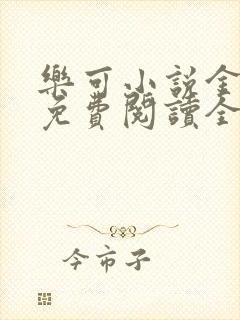 樂可小說全
免費閱讀全
今市子